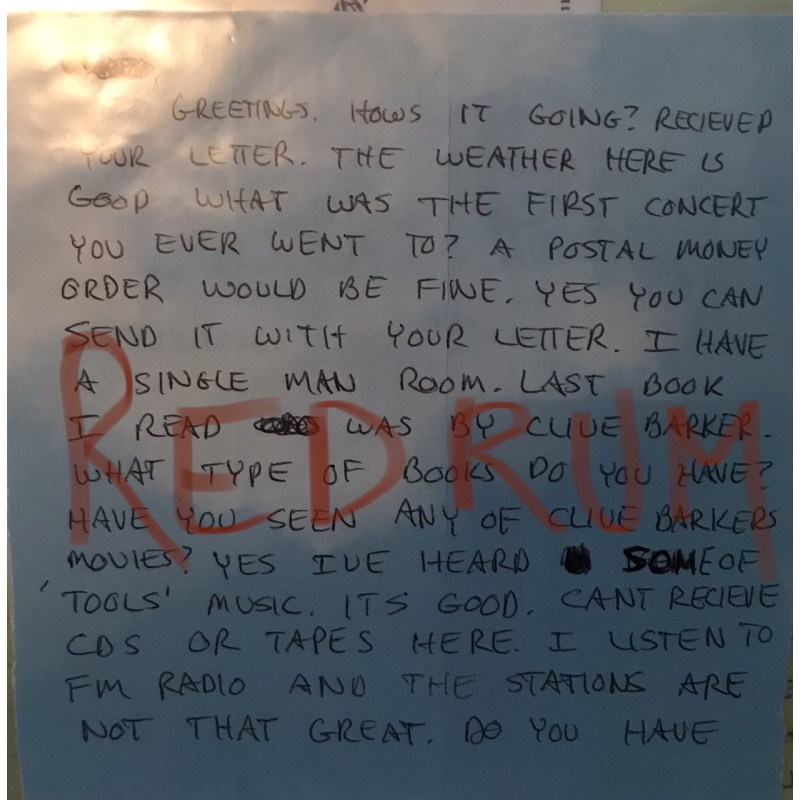 GREETINGS. HOWS IT GOING? RECIEVED
YOUR LETTER. THE WEATHER HERE IS
GOOD WHAT WAS THE FIRST CONCERT
YOU EVER WENT TO? A POSTAL MONEY
ORDER WOULD BE FINE. YES YOU CAN
SEND IT WITH YOUR LETTER. I HAVE
A SINGLE MAN ROOM. LAST BOOK
I READ WAS BY CLIVE BARKER.
REDRUM
WHAT TYPE OF BOOKS DO YOU HAVE?
HAVE YOU SEEN ANY OF CLIVE BARKERS
MOVIES? YES IVE HEARD SOME OF
'TOOLS' MUSIC. ITS GOOD. CANT RECIEVE
CDS OR TAPES HERE. I LISTEN TO
FM RADIO AND THE STATIONS ARE
NOT THAT GREAT. DO YOU HAVE